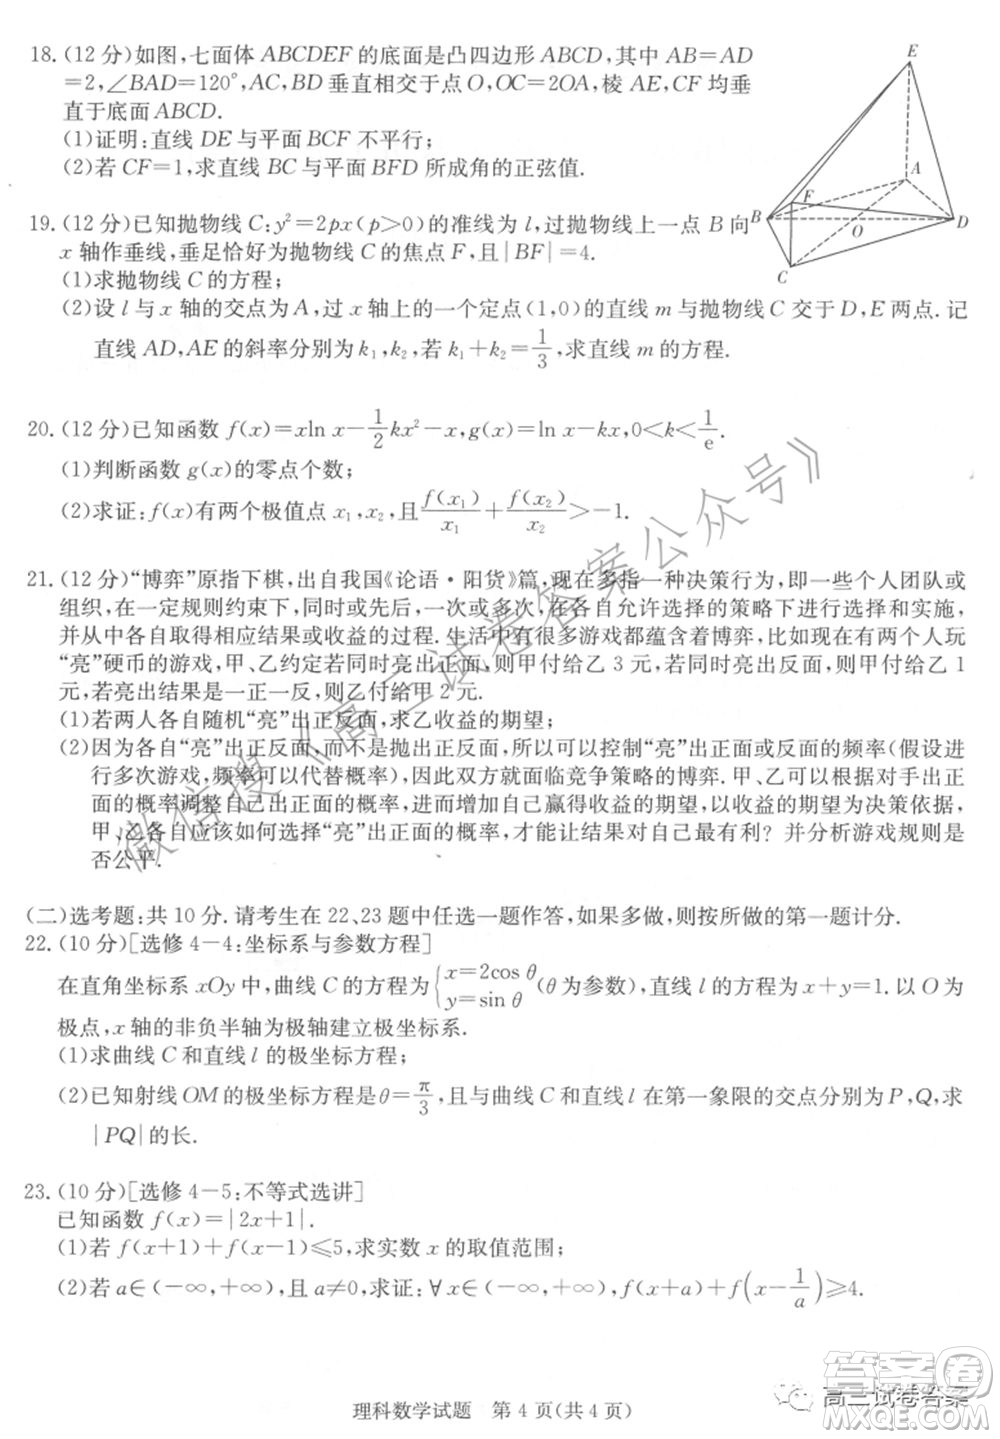 18.(12分)如图,七面体ABCDEF的底面是凸四边形ABCD,其中AB=AD
=2,∠BAD=120°,AC,BD垂直相交于点O,OC=2OA,棱AE,CF均垂
直于底面ABCD.
(1)证明:直线DE与平面BCF不平行;
(2)若CF=1,求直线BC与平面BFD所成角的正弦值.
E
A
F
B
O
D
C
19.(12分)已知抛物线C:y²=2px(p>0)的准线为l,过抛物线上一点B向
x轴作垂线,垂足恰好为抛物线C的焦点F,且|BF|=4.
(1)求抛物线C的方程;
(2)设l与x轴的交点为A,过x轴上的一个定点(1,0)的直线m与抛物线C交于D,E两点.记
直线AD,AE的斜率分别为k₁,k₂,若k₁+k₂=1/3,求直线m的方程.
20.(12分)已知函数f(x)=xln x-1/2kx²-x,g(x)=ln x-kx,0<k<1/e.
(1)判断函数g(x)的零点个数;
(2)求证:f(x)有两个极值点x₁,x₂,且f(x₁)/x₁+f(x₂)/x₂>-1.
21.(12分)“博弈”原指下棋,出自我国《论语·阳货》篇,现在多指一种决策行为,即一些个人团队或
组织,在一定规则约束下,同时或先后,一次或多次,在各自允许选择的策略下进行选择和实施,
并从中各自取得相应结果或收益的过程.生活中有很多游戏都蕴含着博弈,比如现在有两个人玩
“亮”硬币的游戏,甲、乙约定若同时亮出正面,则甲付给乙3元,若同时亮出反面,则甲付给乙1
元,若亮出结果是一正一反,则乙付给甲2元.
(1)若两人各自随机“亮”出正反面,求乙收益的期望;
(2)因为各自“亮”出正反面,而不是抛出正反面,所以可以控制“亮”出正面或反面的频率(假设进
行多次游戏,频率可以代替概率),因此双方就面临竞争策略的博弈.甲、乙可以根据手中出正
面的概率调整自己亮出正面的概率,以赢得收益的期望,以收益的期望为决策依据,
甲、乙各自应该如何选择“亮”出正面的概率,才能让结果对自己最有利?并分析游戏规则是
否公平.
(二)选考题:共10分.请考生在22、23题中任选一题作答,如果多做,则按所做的第一题计分.
22.(10分)[选修4-4:坐标系与参数方程]
在直角坐标系xOy中,曲线C的方程为{x=2cos θ
y=sin θ(θ为参数),直线l的方程为x+y=1.以O为
极点,x轴的非负半轴为极轴建立极坐标系.
(1)求曲线C和直线l的极坐标方程;
(2)已知射线OM的极坐标方程是θ=π/3,且与曲线C和直线l在第一象限的交点分别为P,Q,求
|PQ|的长.
23.(10分)[选修4-5:不等式选讲]
已知函数f(x)=|2x+1|.
(1)若f(x+1)+f(x-1)≤5,求实数x的取值范围;
(2)若a∈(-∞,+∞),且a≠0,求证:∀x∈(-∞,+∞),f(x+a)+f(x-1/a)≥4.
理科数学试题 第4页(共4页)
微信搜《高三试卷答案公众号》
高三试卷答案
答案卷
MXQE.COM